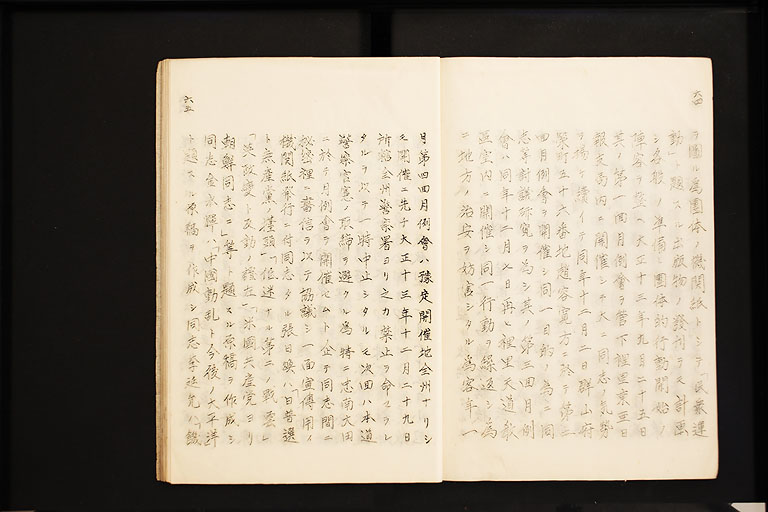 六四
ヲ圖ル爲團体ノ機關紙トシテ「民衆運
動」ト題スル出版物ノ發刊ヲモ計畫
シ各般ノ準備ト團体的行動開始ノ
陣容ヲ整ヘ大正十三年九月二十五日
其ノ第一回月例會ヲ管下裡里東亞日
報支局內ニ開催シテ大ニ同志ノ氣勢
ヲ揚ケ續イテ同年十一月二日群山府
榮町五十六番地趙容寬方ニ於テ第二
回月例會ヲ開催シ同一目的ノ爲ニ同
志ト討議硏究ヲ爲シ其ノ第三回月例
會ハ同年十二月七日再ヒ裡里天道敎
區室內ニ開催シ同一行動ヲ繰返シ爲
ニ地方ノ治安ヲ妨害シタル爲客年一
六五
月第四回月例會ハ豫定開催地全州ナリシ
モ開催ニ先チ大正十三年十二月二十九日
所轄全州警察署ヨリ之カ禁止ヲ命セラレ
タルヲ以テ一時中止シタルモ次回ハ本道
警察官憲ノ取締ヲ避クル爲特ニ忠南大田
ニ於テ月例會ヲ開催セムト企テ同志間ニ
秘密裡ニ書信ヲ以テ協議シ一面宣傳用ノ
機關紙發行ニ付同志タル張日煥ハ日普選
ト無產黨ノ擡頭」「低迷ナル第二ノ戰雲」
「英政變ト反動ノ露佐」「米國共產黨ヨリ
朝鮮同志ニ」等ト題スル原稿ヲ作成シ
同志金永暉ハ「中國動乱ト今後ノ太平洋」
ト題スル原稿ヲ作成シ同志李延允ハ「鐵